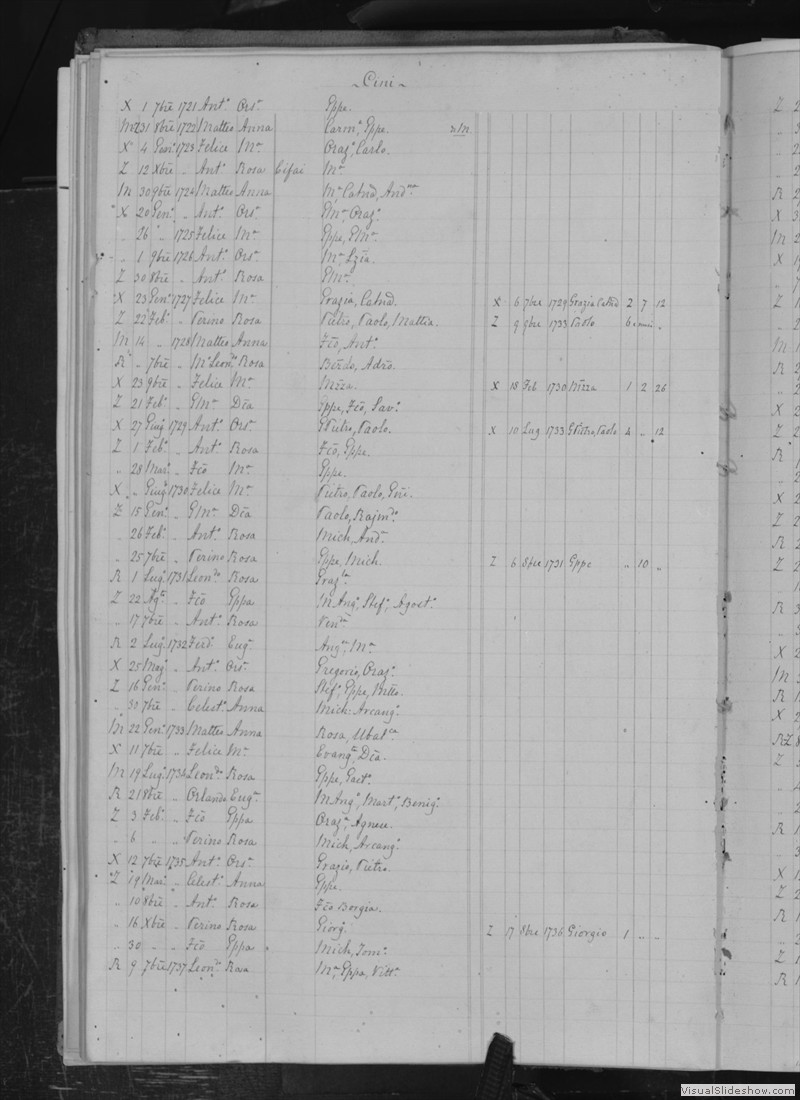 ~Cini~
X 1 7bre 1721 Ant.o Ors.a Gppe.
MZ 31 8bre 1722 Matteo Anna Carm.o, Gppe. M.
X 4 Gen.o 1723 Felice M.a Oraz.o, Carlo.
Z 12 Xbre „ Ant.o Rosa Cifai M.a
M 30 9bre 1724 Matteo Anna M.a Catnã, And.na
X 20 Gen.o „ Ant.o Ors.a GM.a, Oraz.o
„ 26 „ 1725 Felice M.a Gppe, GM.a
„ 1 9bre 1726 Ant.o Ors.a M.a Lzia.
Z 30 8bre „ Ant.o Rosa GM.a
X 23 Gen.o 1727 Felice M.a Grazia, Catnã. X 6 7bre 1729 Grazia Catnã 2 7 12
Z 22 Feb.o „ Verino Rosa Pietro, Paolo, Mattia. Z 9 9bre 1733 Paolo 6
M 14 „ 1728 Matteo Anna Fcõ, Ant.o
R „ 7bre „ M.o Leon.do Rosa Bẽrdo, Adrõ.
X 23 9bre „ Felice M.a X 18 Feb 1730 1 2 26
Z 21 Feb.o „ GM.a Dẽa Gppe, Fcõ, Sav.o
X 27 Giug 1729 Ant.o Ors.a GPietro, Paolo. X 10 Lug 1733 GPietro, Paolo 4 „ 12
Z 1 Feb.o „ Ant.o Rosa Fcõ, Gppe.
„ 28 Mar.o „ Fcõ M.a Gppe.
X „ Giug.o 1730 Felice M.a Pietro, Paolo,
Z 15 Gen.o „ GM.a Dẽa Paolo, Rajm.do
„ 26 Feb.o „ Ant.o Rosa Mich, And.a
„ 25 7bre „ Verino Rosa Gppe, Mich. Z 6 8bre 1731 Gppe „ 10 „
R 1 Lug.o 1731 Leon.do Rosa
Z 22 Ag.o „ Fcõ Gppa M.Ang.o, Stef.o, Agost.o
„ 17 7bre „ Ant.o Rosa
R 2 Lug.o 1732 Ferd.o Eug.a Ang.a, M.a
X 25 Mag.o „ Ant.o Ors.a Gregorio, Oraz.o
Z 16 Gen.o „ Verino Rosa Stef.o, Gppe,
„ 30 7bre „ Celest.o Anna Mich: Arcang.o
M 22 Gen.o 1733 Matteo Anna Rosa, Ubal.ca
X 11 7bre „ Felice M.a Evang.a, Dẽa.
M 19 Lug.o 1734 Leon.do Rosa Gppe, Gaet.o
R 21 8bre „ Orlando Eug.a M.Ang.o, Mart.o, Benig.o
Z 3 Feb.o „ Fcõ Gppa Oraz.a, Agnese.
„ 6 „ „ Verino Rosa Mich, Arcang.o
X 12 7bre 1735 Ant.o Ors.a Grazio, Pietro.
Z 19 Mar.o „ Celest.o Anna Gppe.
„ 10 8bre „ Ant.o Rosa Fcõ Borgia.
„ 16 Xbre „ Verino Rosa Giorg.o Z 17 8bre 1736 Giorgio 1 „ „
„ 30 „ „ Fcõ Gppa Mich, Tom.o
R 9 7bre 1737 Leon.do Rosa M.a, Gppa, Vitt.a
VisualSlideshow.com